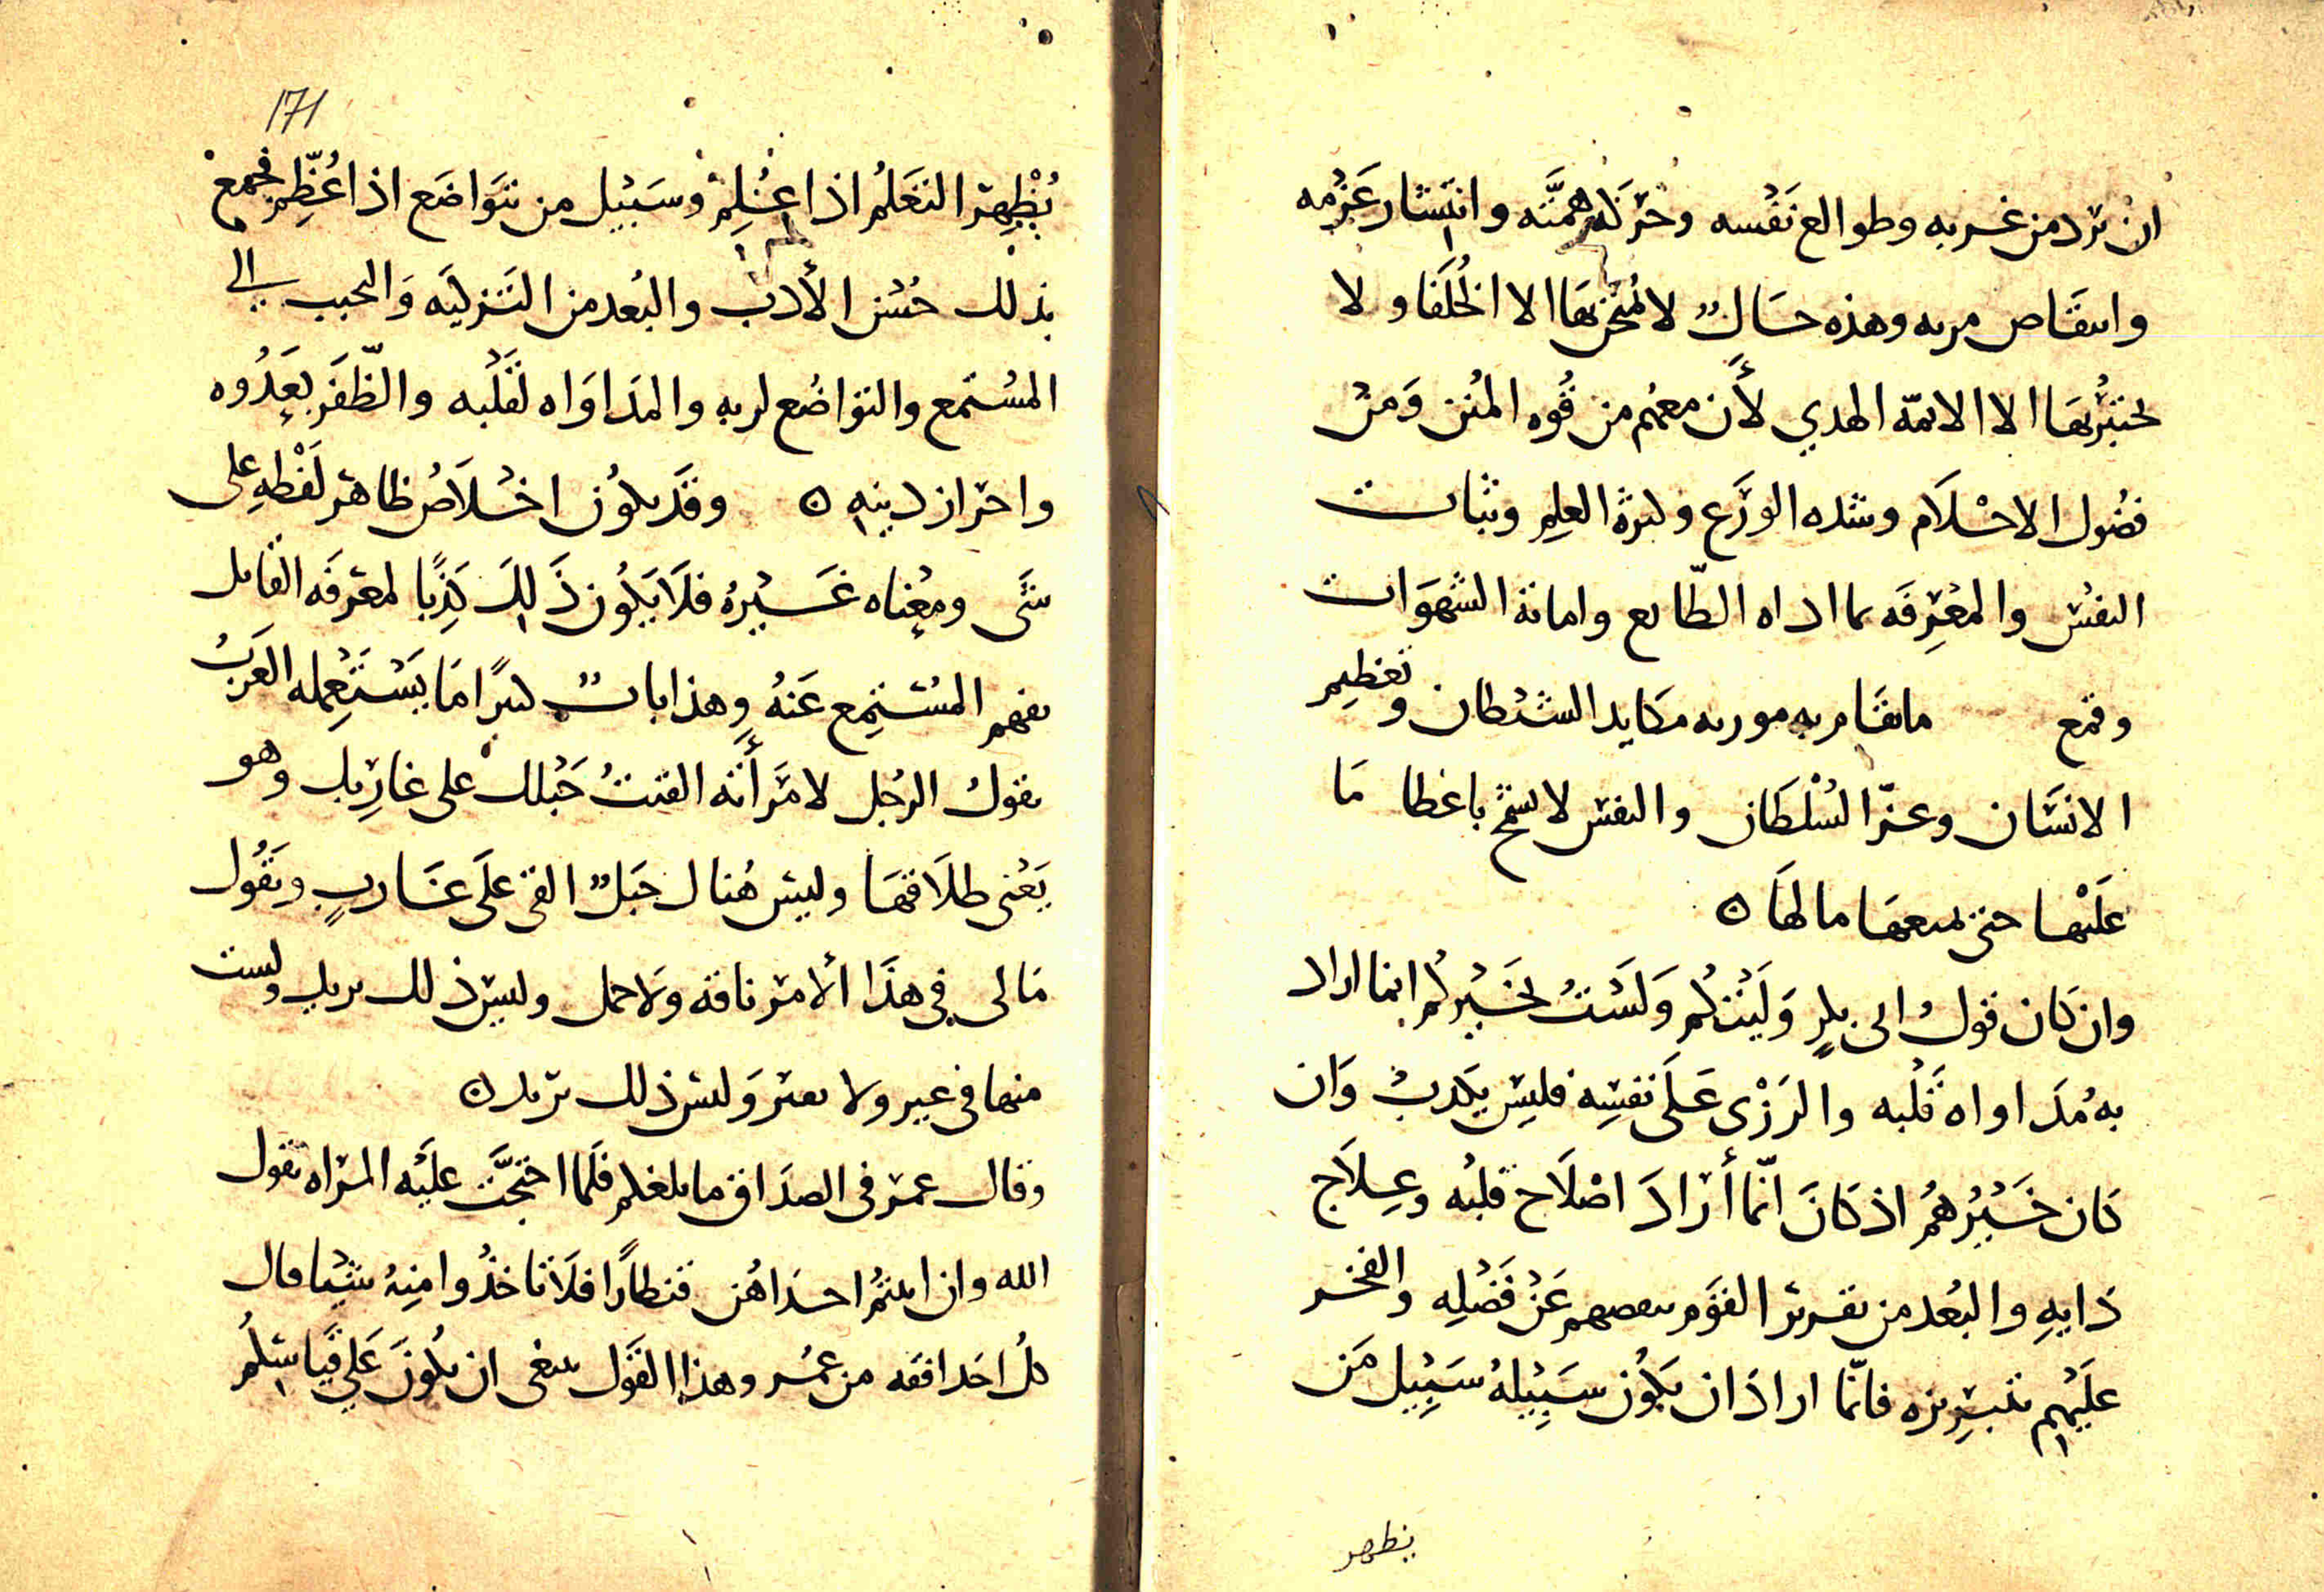 ان ترد من غربه وطوالع نفسه وحركه همته وانتشار عزمه
وانتقاص مربه وهذه حال لا يمتحن بها الا الخلفا ولا
يختبر بها الا الائمه الهدي لأن معهم من قوه المنن ومن
فضول الاحلام وشده الورع وكثرة العلم وثبات
النفس والمعرفه بما اداه الطبايع واماتة الشهوات
وقمع مكايد الشيطان وتعظيم
الانسان وعز السلطان والنفس لا تسمح باعطا ما
عليها حتى تمنعها ما لها ه
وان كان قول ابى بكر وليتكم ولست بخيركم انما اراد
به مداواه قلبه والزرى على نفسه فليس يكذب وان
كان خيرهم اذ كان انما أراد اصلاح قلبه وعلاج
دايه والبعد من تقرير القوم بنقصهم عن فضله والفخر
عليهم بتبريزه فانما اراد ان يكون سبيله سبيل من
يظهر
171
يظهر التعلم اذا علم وسبيل من يتواضع اذا عظم فجمع
بذلك حسن الأدب والبعد من التزكيه والتحبب الى
المستمع والتواضع لربه والمداواه لقلبه والظفر بعدوه
واحراز دينه ه وقد يكون اخلاص ظاهر لفظه على
شى ومعناه غيره فلا يكون ذلك كذبا لمعرفه القايل
بفهم المستمع عنه وهذا باب كثيرا ما يستعمله العرب
يقول الرجل لامرأته القيت حبلك على غاربك وهو
يعنى طلاقها وليس هناك حبل القى على غارب ويقول
مالى فى هذا الأمر ناقه ولا جمل وليس ذلك يريد ولست
منها فى عير ولا نفير وليس ذلك تريد ه
وقال عمر فى الصداق ما بلغكم فلما احتجت عليه المراه بقول
الله وان اتيتم احداهن قنطارا فلا تاخذوا منه شيا قال
كل احد افقه من عمر وهذا القول ينبغى ان يكون على قياسكم